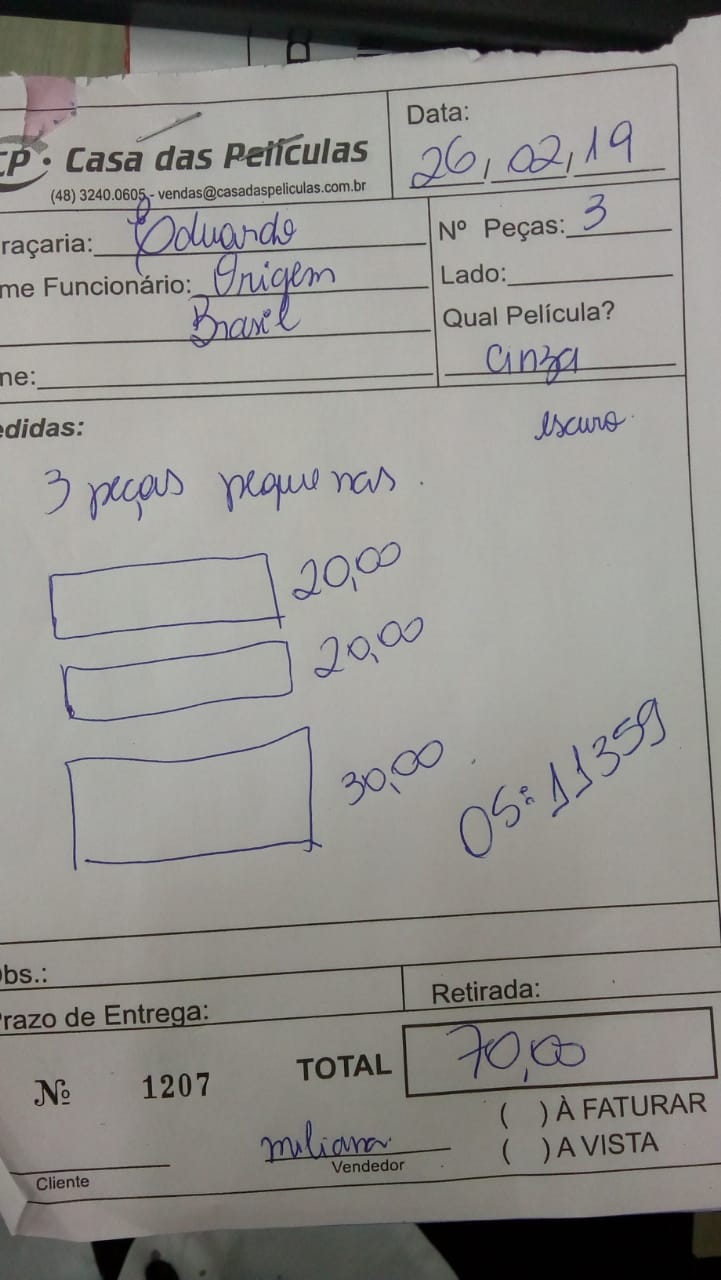 CP • Casa das Películas
(48) 3240.0605 - vendas@casadaspeliculas.com.br
Data: 26, 02, 19
raçaria: Eduardo
Nº Peças: 3
me Funcionário: Origem
Brasil
Lado:
Qual Película?
cinza
escuro.
ne:
edidas:
3 peças pequenas.
20,00
20,00
30,00
OS: 11359
Obs.:
razo de Entrega:
Retirada:
Nº 1207
TOTAL 70,00
( ) À FATURAR
( ) A VISTA
miliana
Vendedor
Cliente